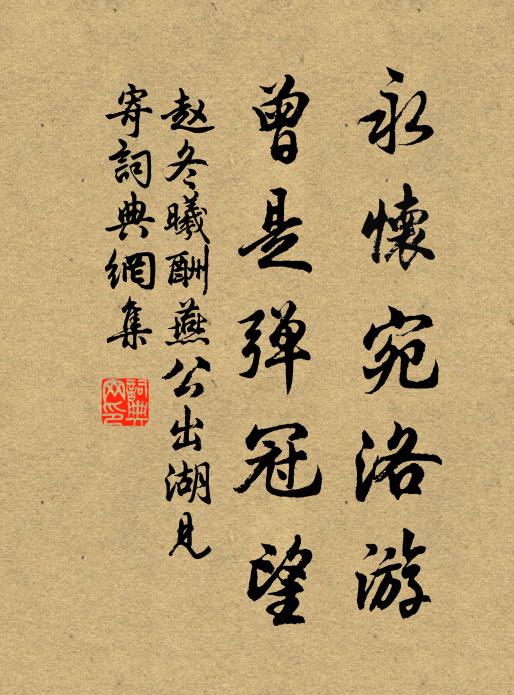 永懷宛洛游
曾是弹冠望
赵冬曦酬燕公出湖見
寄詞典網集
詞典网印